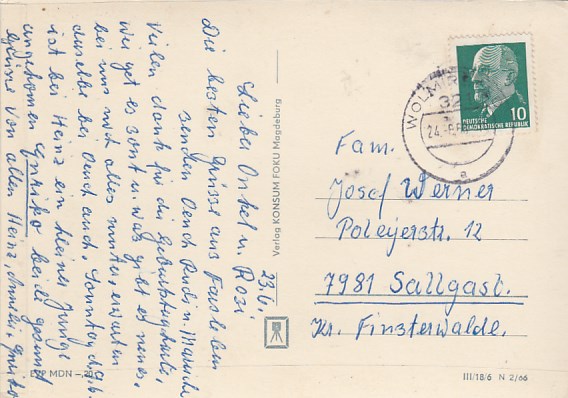 23.6.
Lieber Onkel u. Rosi
Die besten Grüsse aus Farsleben
senden Euch Rudi u.
Vielen dank für die Geburtstagskarte,
wie get es sonst u. was gibt es neues.
bei uns ist alles munter, erwarten
dasselbe bei Euch auch. Sonntag
ist bei Heinz ein kleiner Junge
angekommen Enriko beide gesund
Grüsse von allen Heinz,
Verlag KONSUM FOKU Magdeburg
EVP MDN –,20
WOLMIRST
32
24.-6.6
a
10
DEUTSCHE
DEMOKRATISCHE REPUBLIK
Fam.
Josef Werner
Poleyerstr. 12
7981 Sallgast.
Kr. Finsterwalde.
III/18/6 N 2/66